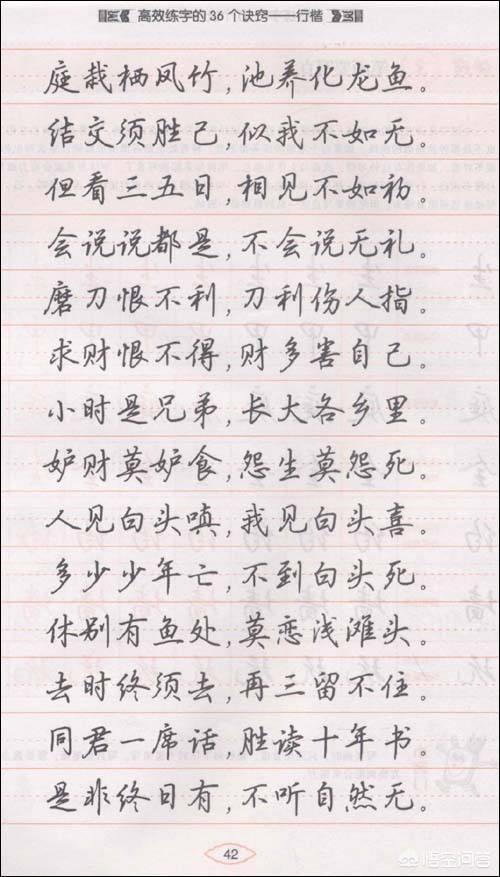 高效练字的36个诀窍——行楷
庭栽栖凤竹,池养化龙鱼。
结交须胜己,似我不如无。
但看三五日,相见不如初。
会说说都是,不会说无礼。
磨刀恨不利,刀利伤人指。
求财恨不得,财多害自己。
小时是兄弟,长大各乡里。
妒财莫妒食,怨生莫怨死。
人见白头嗔,我见白头喜。
多少少年亡,不到白头死。
休别有鱼处,莫恋浅滩头。
去时终须去,再三留不住。
同君一席话,胜读十年书。
是非终日有,不听自然无。
42
悟空问答